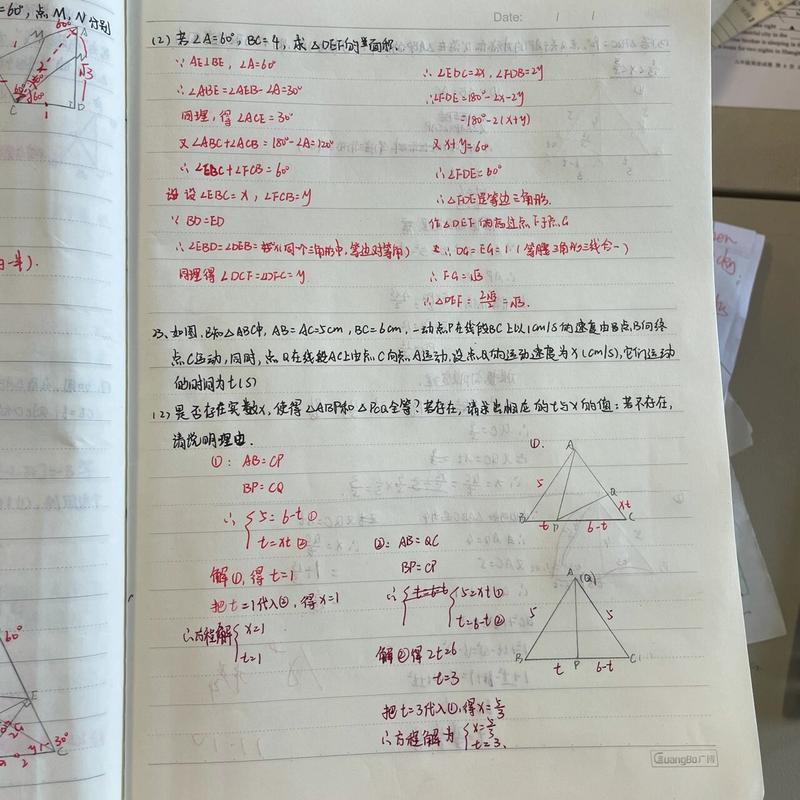 =60°, 点 M, N 分别
Date: / /
(2) 若∠A=60°, BC=4, 求△DEF的面积.
∵ AE⊥BE, ∠A=60°
∴∠ABE=∠AEB-∠A=30°
同理, 得∠ACE=30°
又∠ABC+∠ACB=180°-∠A=120°
∴∠EBC+∠FCB=60°
设∠EBC=x, ∠FCB=y
∵ BD=ED
∴∠EBD=∠DEB= (在同一个三角形中, 等边对等角)
同理得∠DCF=∠DFC=y
∴∠EDC=2x, ∠FDB=2y
∴∠FDE=180°-2x-2y
=180°-2(x+y)
又x+y=60°
∴∠FDE=60°
∴△FDE是等边三角形.
作△DEF的高过点F于点G
∴DG=EG=1 (等腰三角形三线合一)
∴FG=√3
∴△DEF=2√3/2=√3.
23、如图, 已知△ABC中, AB=AC=5cm, BC=6cm, 一动点P在线段BC上以1cm/s的速度由B点向终
点C运动, 同时, 点Q在线段AC上由点C向点A运动, 设点Q的运动速度为x(cm/s), 它们运动
的时间为t(s)
(2) 是否存在实数x, 使得△ABP和△PCQ全等? 若存在, 请求出相应的t与x的值; 若不存在,
请说明理由.
①: AB=CP
BP=CQ
∴ {5=6-t ①
t=xt ②
解①, 得t=1
把t=1代入②, 得x=1
∴方程解{x=1
t=1
②: AB=QC
BP=CP
∴ {5=xt ①
t=6-t ②
解②得2t=6
t=3
把t=3代入①, 得x=5/3
∴方程解为{x=5/3
t=3.
①.
A
5
Q
xt
B
t
P
6-t
C
A
(Q)
5
5
B
t
P
6-t
C
GuangBo广博